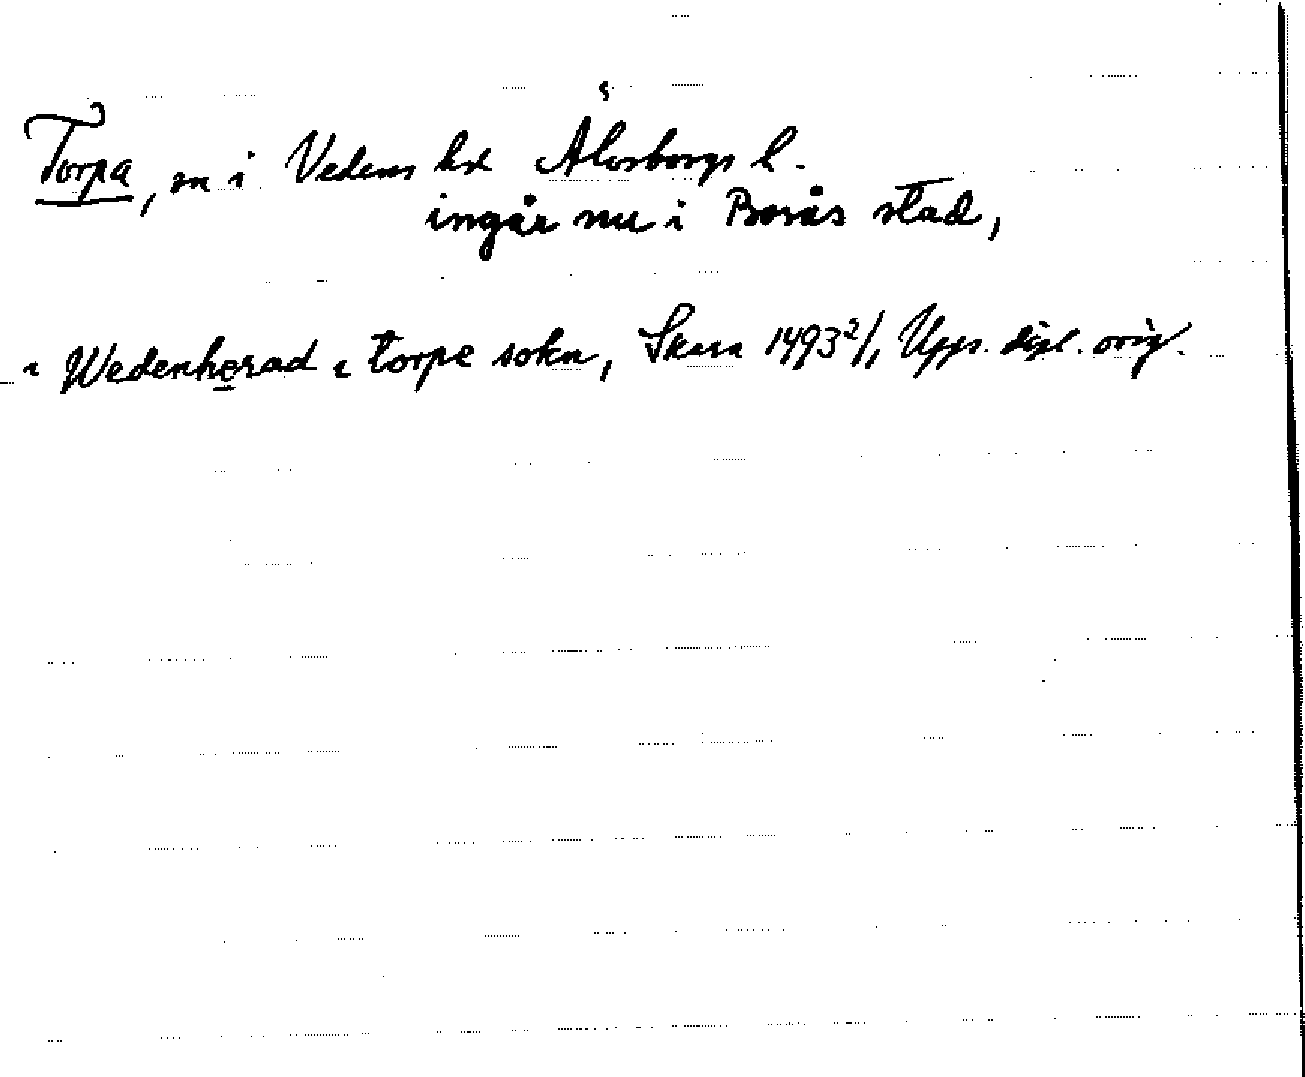 s
Torpa, sn i Vedens hd Älvsborgs l.
ingår nu i Borås stad,
i Wedenherad i torpe sokn, Skara 1493 2/1, Upps. dipl. orig.